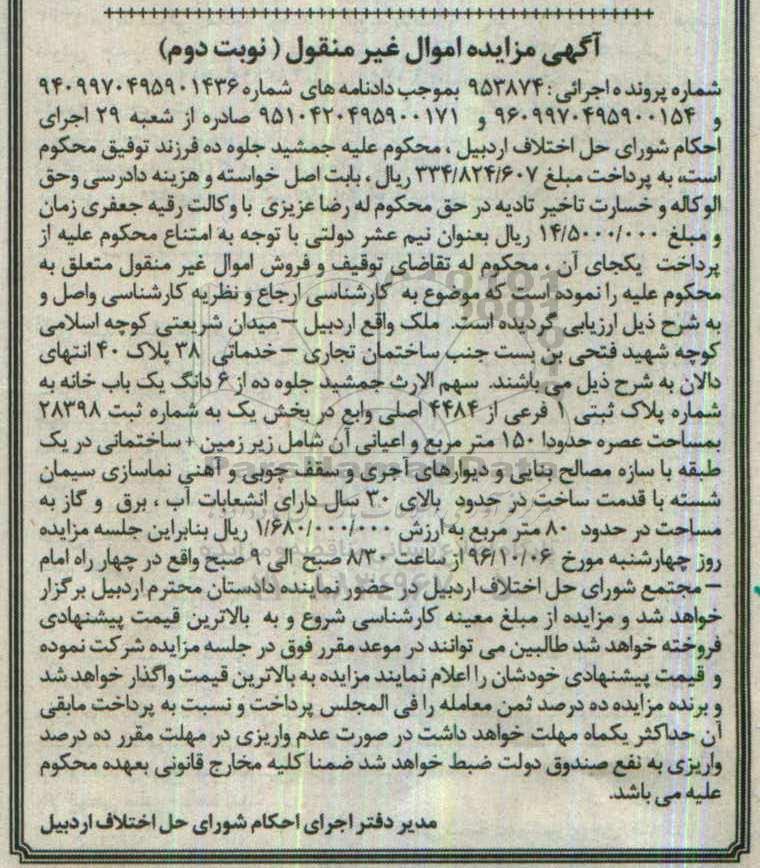 آگهی مزایده اموال غیر منقول ( نوبت دوم)
شماره پرونده اجرائی: ۹۵۳۸۷۴ بموجب دادنامه های شماره ۹۴۰۹۹۷۰۴۹۵۹۰۱۴۳۶
و ۹۶۰۹۹۷۰۴۹۵۹۰۰۱۵۴ و ۹۵۱۰۴۲۰۴۹۵۹۰۰۱۷۱ صادره از شعبه ۲۹ اجرای
احکام شورای حل اختلاف اردبیل ، محکوم علیه جمشید جلوه ده فرزند توفیق محکوم
است، به پرداخت مبلغ ۳۳۴/۸۲۴/۶۰۷ ریال ، بابت اصل خواسته و هزینه دادرسی وحق
الوکاله و خسارت تاخیر تادیه در حق محکوم له رضا عزیزی با وکالت رقیه جعفری زمان
و مبلغ ۱۴/۵۰۰۰/۰۰۰ ریال بعنوان نیم عشر دولتی با توجه به امتناع محکوم علیه از
پرداخت یکجای آن ، محکوم له تقاضای توقیف و فروش اموال غیر منقول متعلق به
محکوم علیه را نموده است که موضوع به کارشناسی ارجاع و نظریه کارشناسی واصل و
به شرح ذیل ارزیابی گردیده است. ملک واقع اردبیل – میدان شریعتی کوچه اسلامی
کوچه شهید فتحی بن بست جنب ساختمان تجاری – خدماتی ۳۸ پلاک ۴۰ انتهای
دالان به شرح ذیل می باشند. سهم الارث جمشید جلوه ده از ۶ دانگ یک باب خانه به
شماره پلاک ثبتی ۱ فرعی از ۴۴۸۴ اصلی وابع در بخش یک به شماره ثبت ۲۸۳۹۸
بمساحت عصره حدودا ۱۵۰ متر مربع و اعیانی آن شامل زیر زمین + ساختمانی در یک
طبقه با سازه مصالح بنایی و دیوارهای آجری و سقف چوبی و آهنی نماسازی سیمان
شسته با قدمت ساخت در حدود بالای ۳۰ سال دارای انشعابات آب ، برق و گاز به
مساحت در حدود ۸۰ متر مربع به ارزش ۱/۶۸۰/۰۰۰/۰۰۰ ریال بنابراین جلسه مزایده
روز چهارشنبه مورخ ۹۶/۱۰/۰۶ از ساعت ۸/۳۰ صبح الی ۹ صبح واقع در چهار راه امام
– مجتمع شورای حل اختلاف اردبیل در حضور نماینده دادستان محترم اردبیل برگزار
خواهد شد و مزایده از مبلغ معینه کارشناسی شروع و به بالاترین قیمت پیشنهادی
فروخته خواهد شد طالبین می توانند در موعد مقرر فوق در جلسه مزایده شرکت نموده
و قیمت پیشنهادی خودشان را اعلام نمایند مزایده به بالاترین قیمت واگذار خواهد شد
و برنده مزایده ده درصد ثمن معامله را فی المجلس پرداخت و نسبت به پرداخت مابقی
آن حداکثر یکماه مهلت خواهد داشت در صورت عدم واریزی در مهلت مقرر ده درصد
واریزی به نفع صندوق دولت ضبط خواهد شد ضمنا کلیه مخارج قانونی بعهده محکوم
علیه می باشد.
مدیر دفتر اجرای احکام شورای حل اختلاف اردبیل